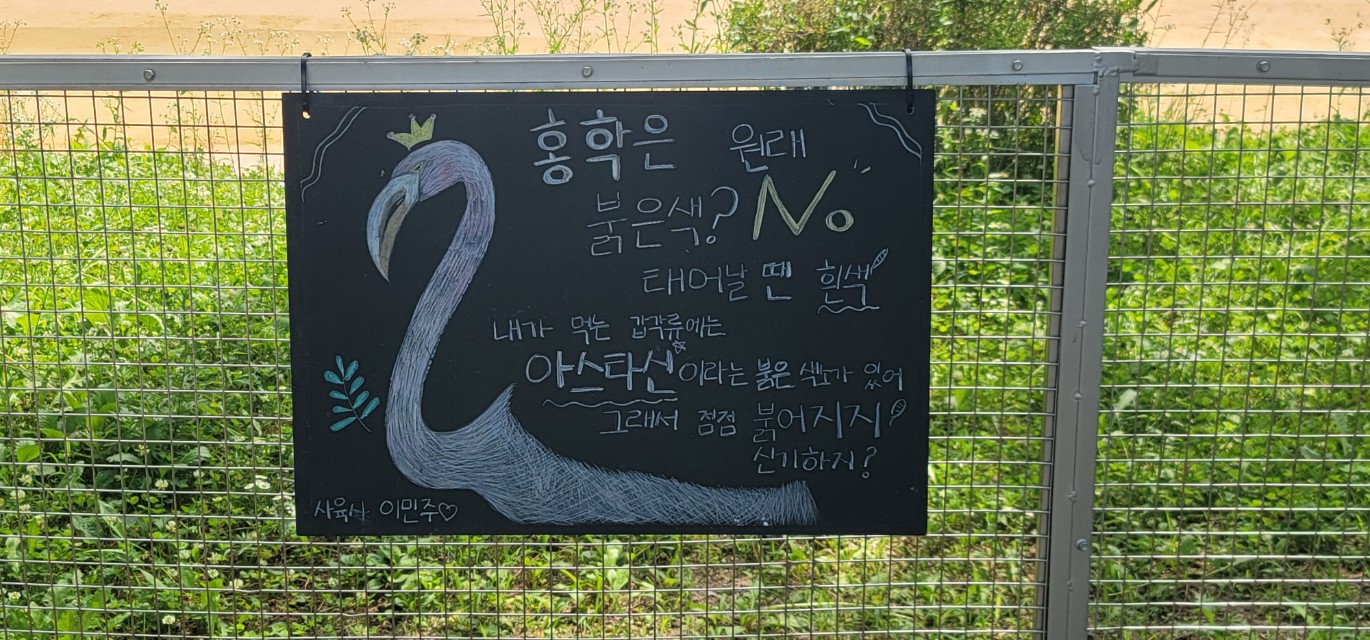 홍학은 원래
붉은색? No
태어날 땐 흰색
내가 먹는 갑각류에는
아스타신이라는 붉은 색소가 있어
그래서 점점 붉어지지!
신기하지?
사육사 이민주♡